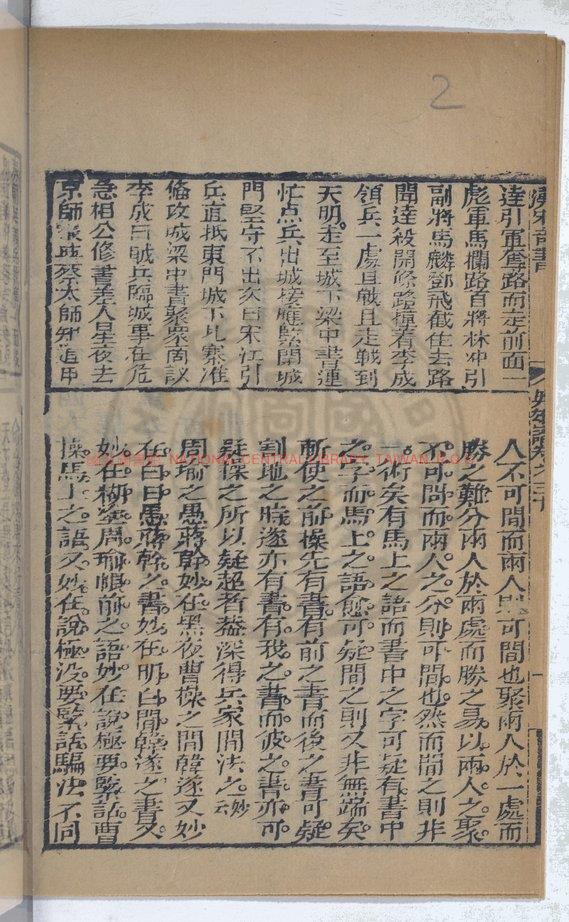 2
漢宋奇書
達引軍奪路而走前面一
彪軍馬攔路首將林冲引
副將馬麟鄧飛截住去路
聞達殺開條路撞着李成
領兵一處且戰且走戰到
天明走至城下梁中書連
忙点兵出城接應緊閉城
門堅守不出次日宋江引
兵直抵東門城下扎寨准
俻攻城梁中書聚衆商議
李成曰賊兵臨城事在危
急相公修書差人星夜去
京師報與蔡太師知道早
卷之三十
人不可間而兩人則可間也聚兩人於一處而
勝之難分兩人於兩處而勝之易以兩人之聚
不可間而兩人之分則可間也然而間之則非
一術矣有馬上之語而書中之字可疑有書中
之字而馬上之語愈可疑間之則又非無端矣
斬使之前操先有書有前之書而後之書可疑
割地之時遂亦有書有我之書而彼之書亦可
疑操之所以疑超者葢深得兵家間法之妙云
周瑜之愚蔣幹妙在黑夜曹操之間韓遂又妙
在白日愚蔣幹之書妙在明白間韓遂之書又
妙在糊塗周瑜帳前之語妙在說極要緊話曹
操馬上之語又妙在說極没要緊話騙法不同
NATIONAL CENTRAL LIBRARY, TAIWAN, R.O.C.